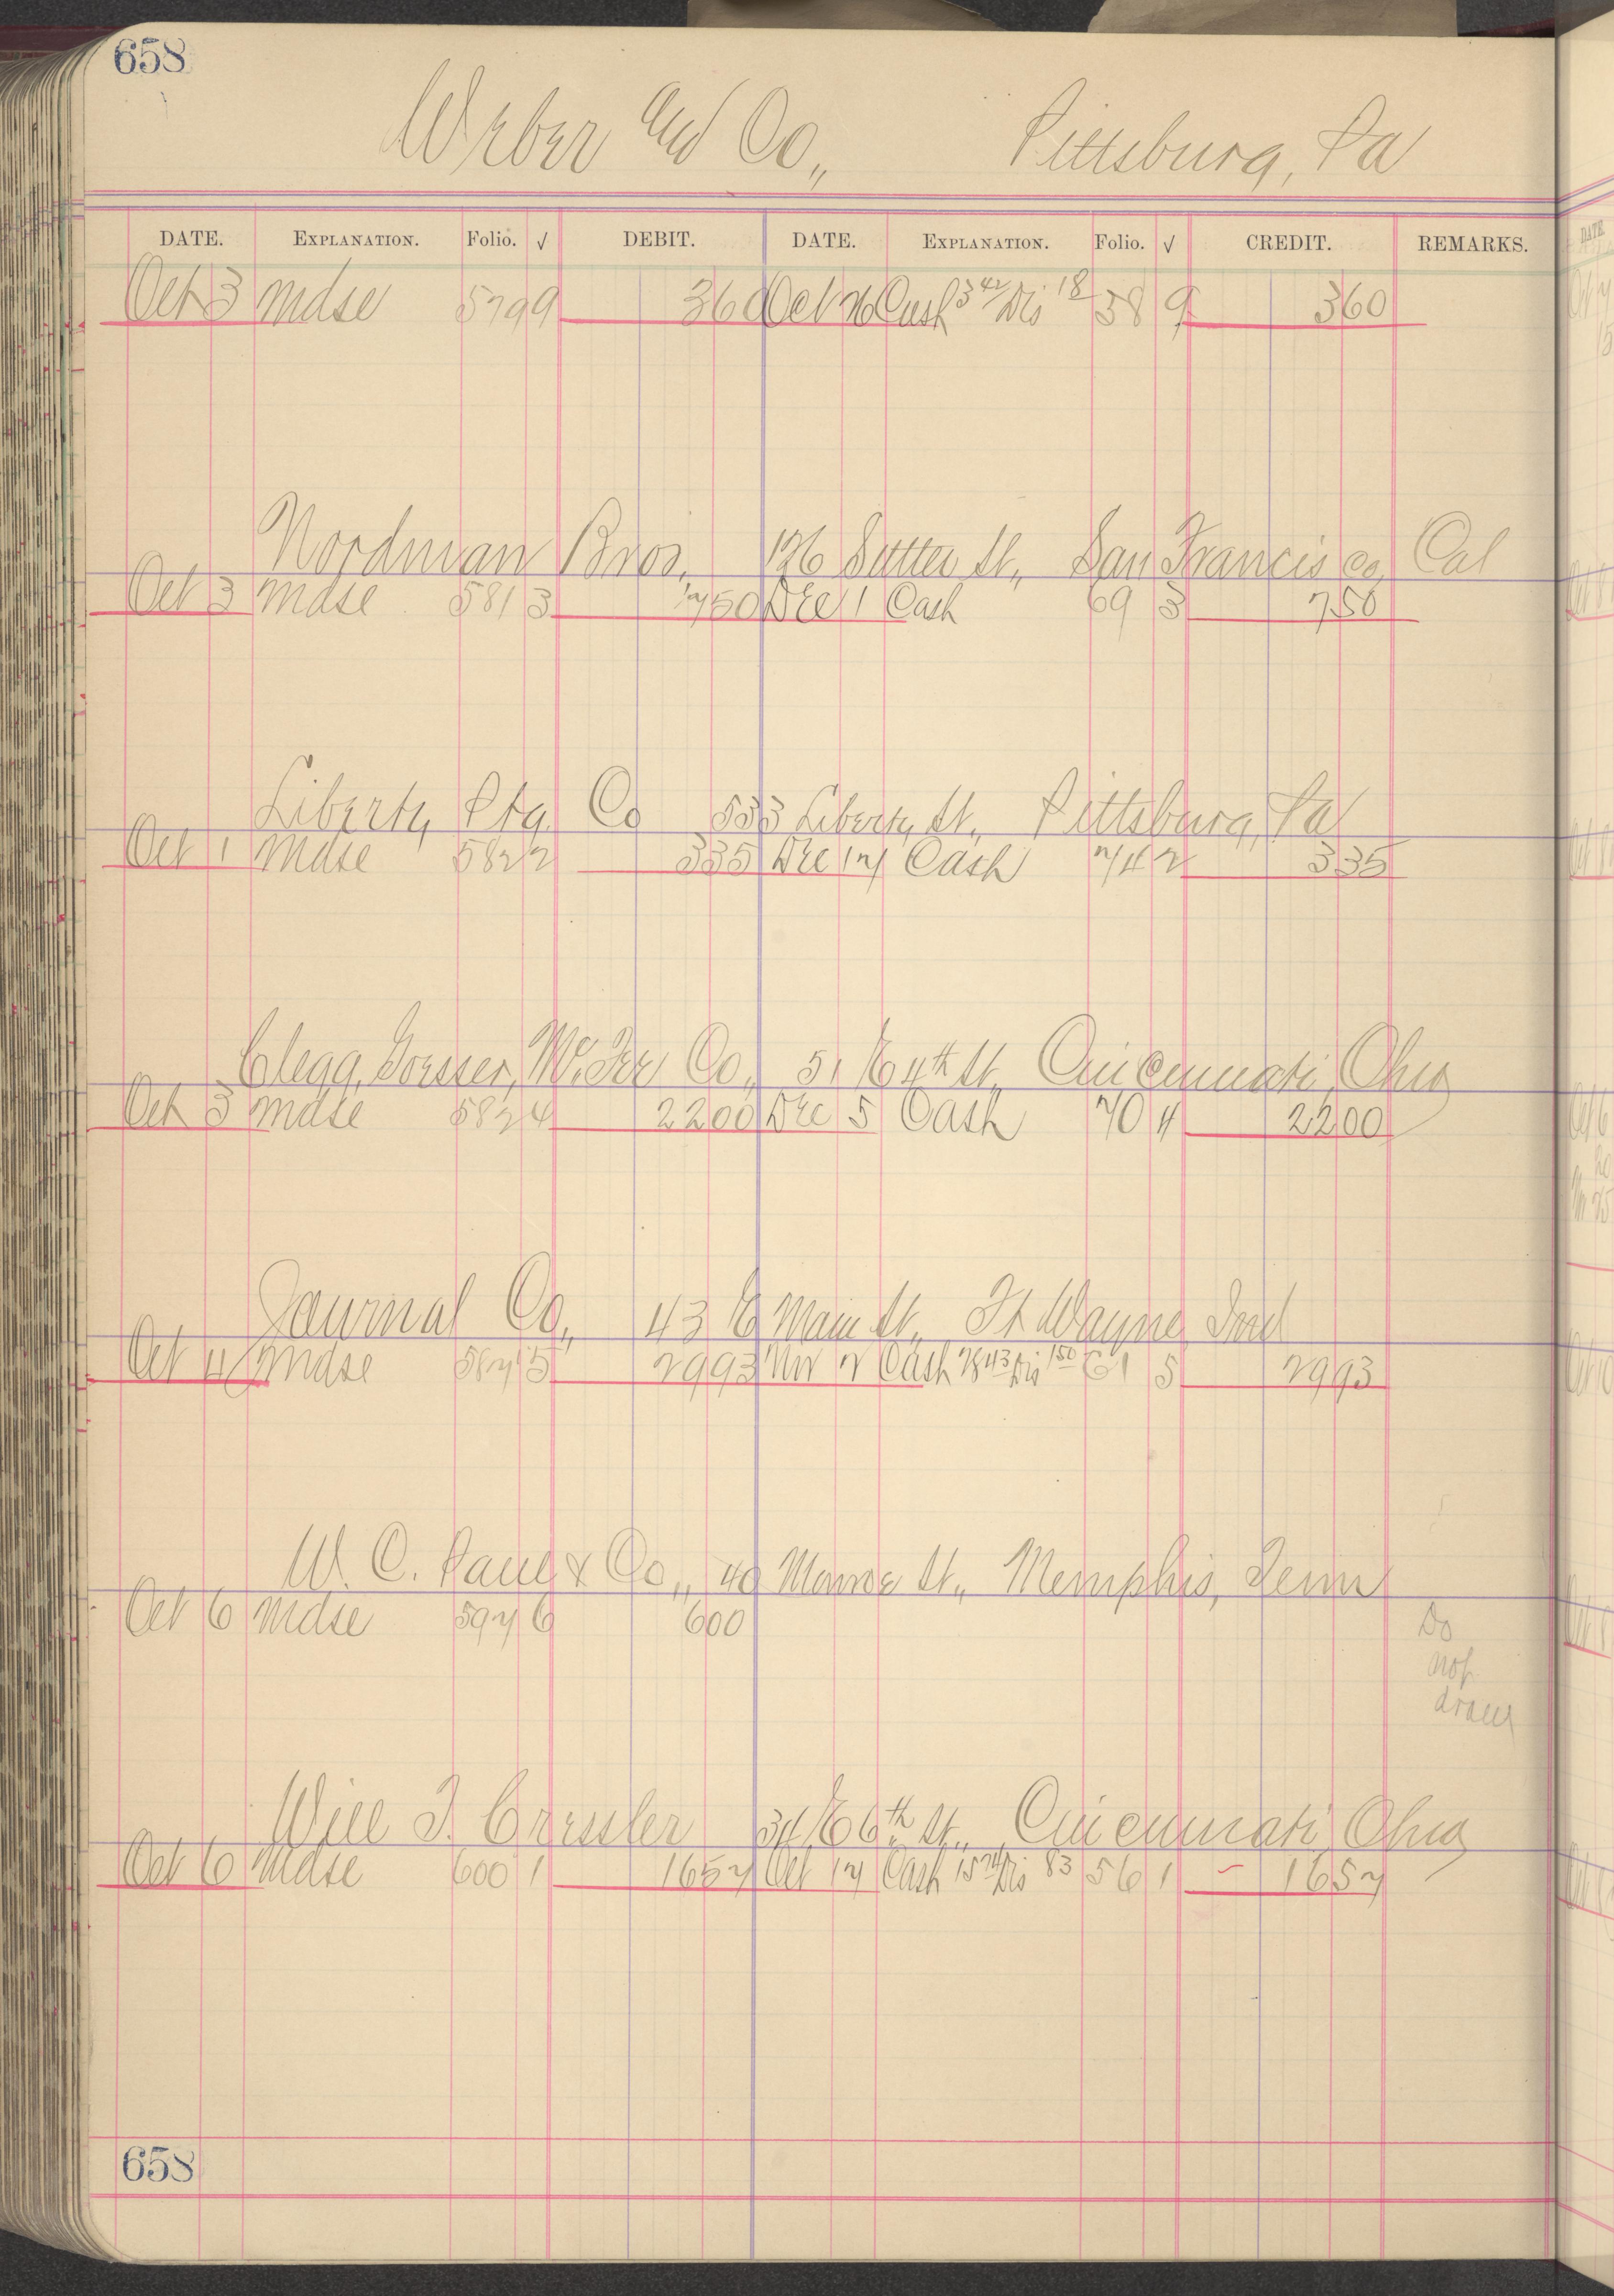 658
Weber and Co,, Pittsburg, Pa
DATE. EXPLANATION. Folio. √ DEBIT. DATE. EXPLANATION. Folio. √ CREDIT. REMARKS.
Oct 3 Mdse 579 9 360 Oct 26 Cash 342 Dis 18 58 9 360
Nordman Bros., 126 Sutter St,, San Francisco, Cal
Oct 3 Mdse 581 3 750 Dec 1 Cash 69 3 750
Liberty Ptg Co 533 Liberty St,, Pittsburg, Pa
Oct 1 Mdse 582 2 335 Dec 17 Cash 74 2 335
Clegg, Goesser, McFee Co,, 51 E 4th St, Cincinnati, Ohio
Oct 3 Mdse 582 4 2200 Dec 5 Cash 70 4 2200
Journal Co,, 43 E Main St,, Ft Wayne, Ind
Oct 4 Mdse 587 5 2993 Nov 2 Cash 2843 Dis 150 61 5 2993
W. C. Paul & Co,, 40 Monroe St,, Memphis, Tenn
Oct 6 Mdse 597 6 600
Do
not
draw
Will T. Cressler 34 E 6th St,, Cincinnati, Ohio
Oct 6 Mdse 600 1 1657 Oct 17 Cash 1574 Dis 83 56 1 1657
658